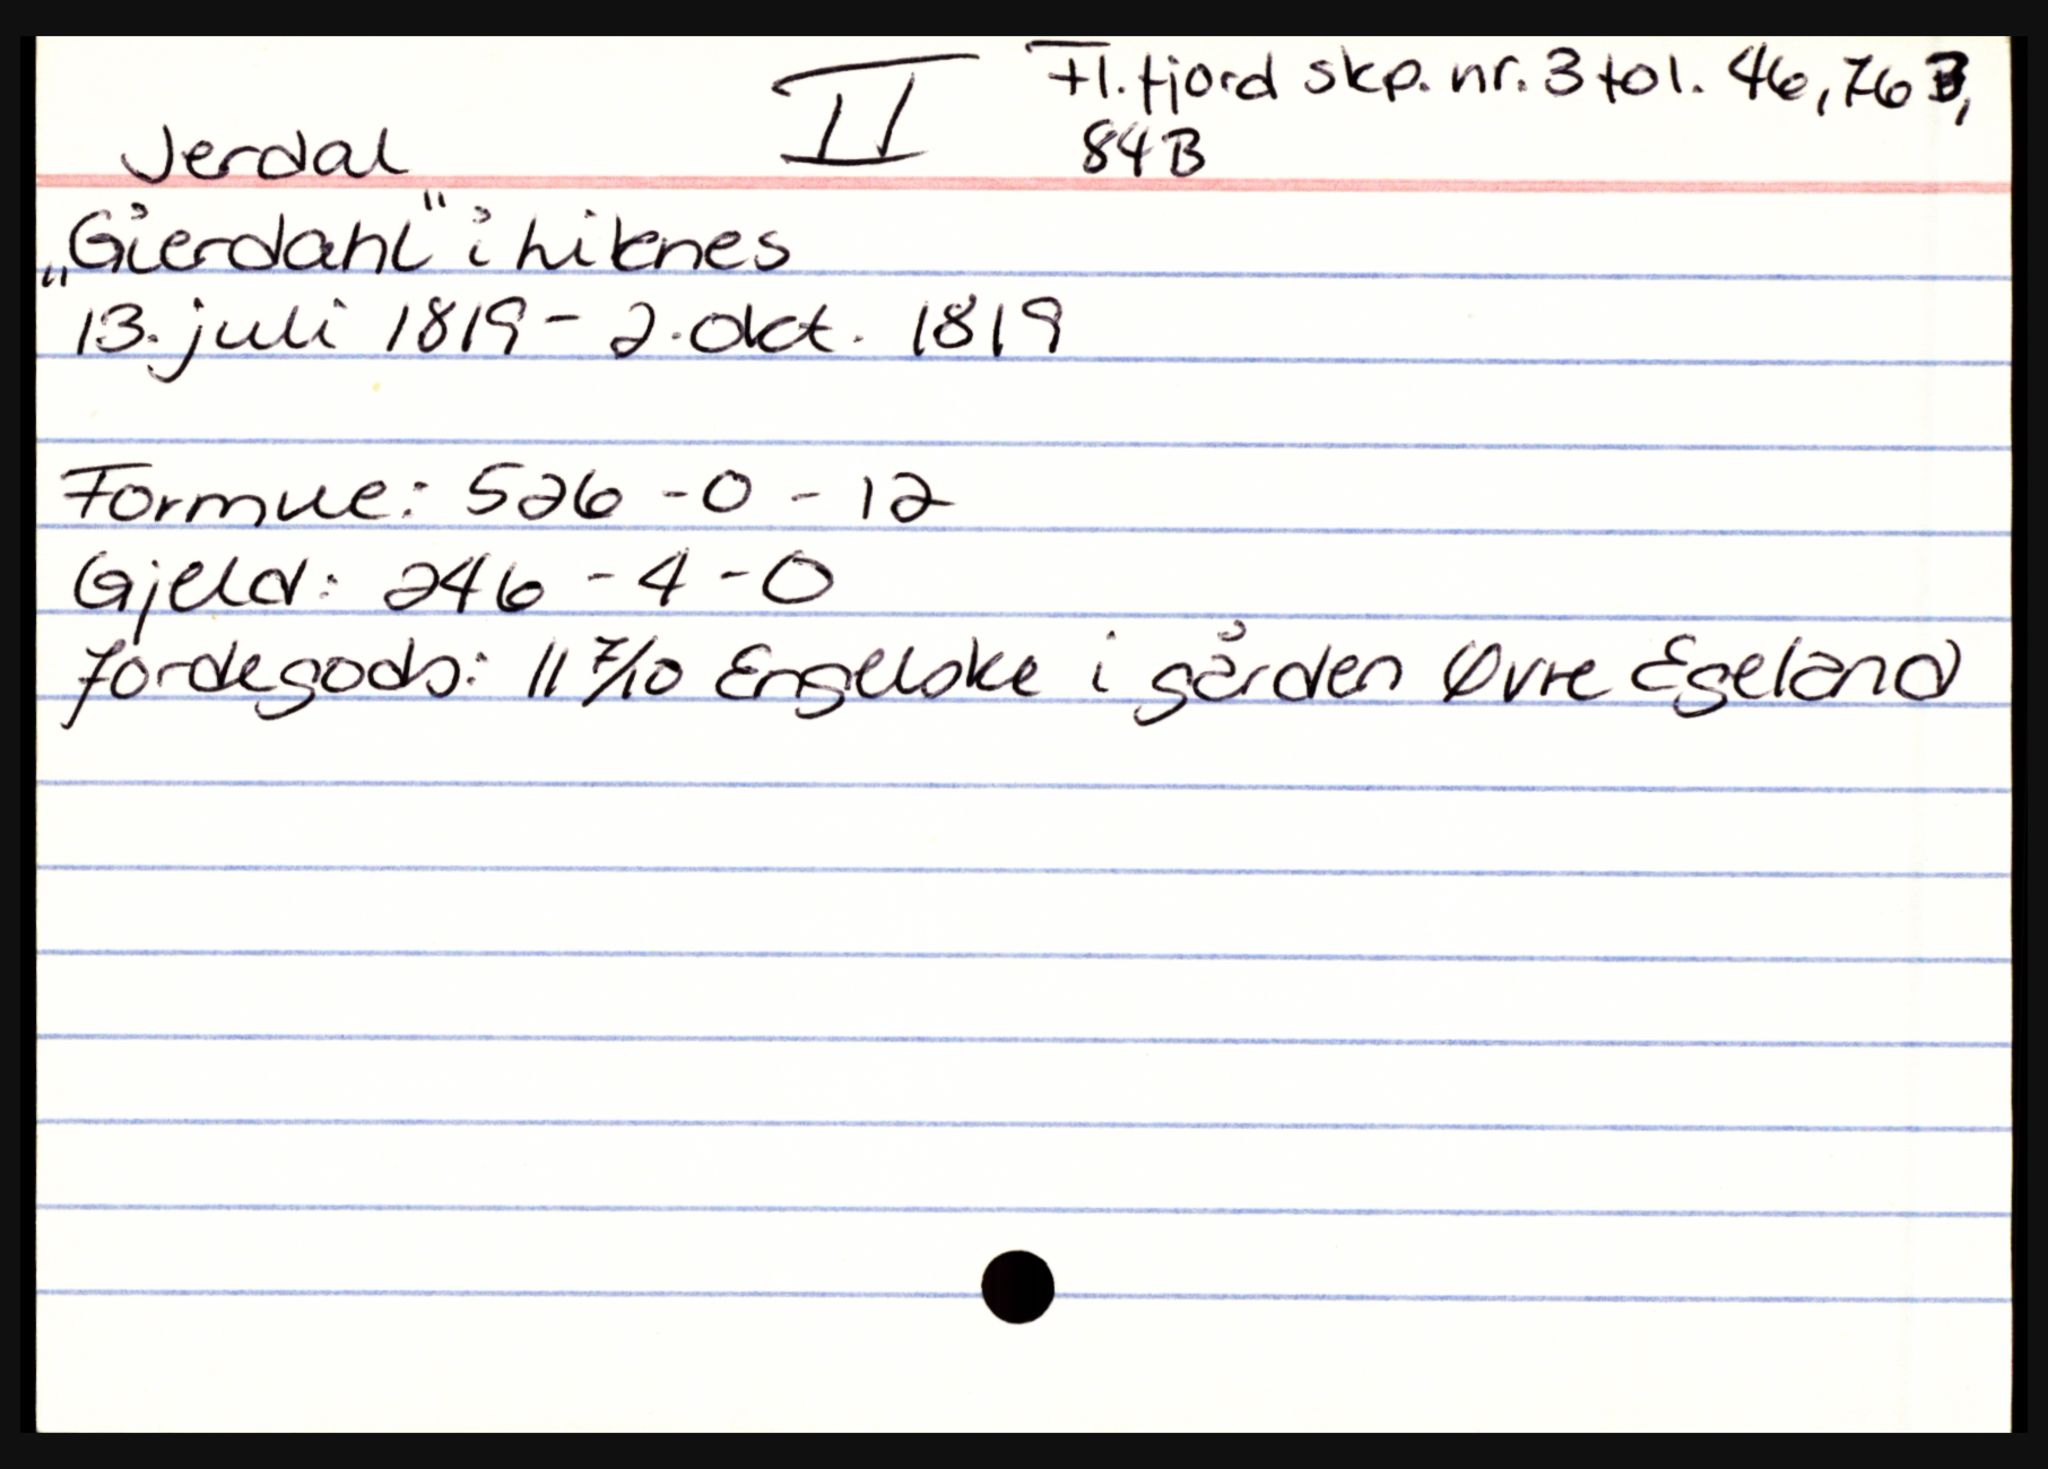 Jerdal II Fl.fjord skp. nr. 3 fol. 46, 76B,
84B
„Gierdahl“ i Liknes
13. juli 1819 - 2. okt. 1819
Formue: 526 - 0 - 12
Gjeld: 246 - 4 - 0
Jordegods: 11 7/10 Engelske i gården Øvre Egeland